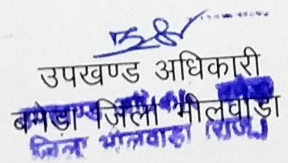 उपखण्ड अधिकारी
बनेड़ा जिला भीलवाड़ा
जिला भीलवाड़ा (राज.)